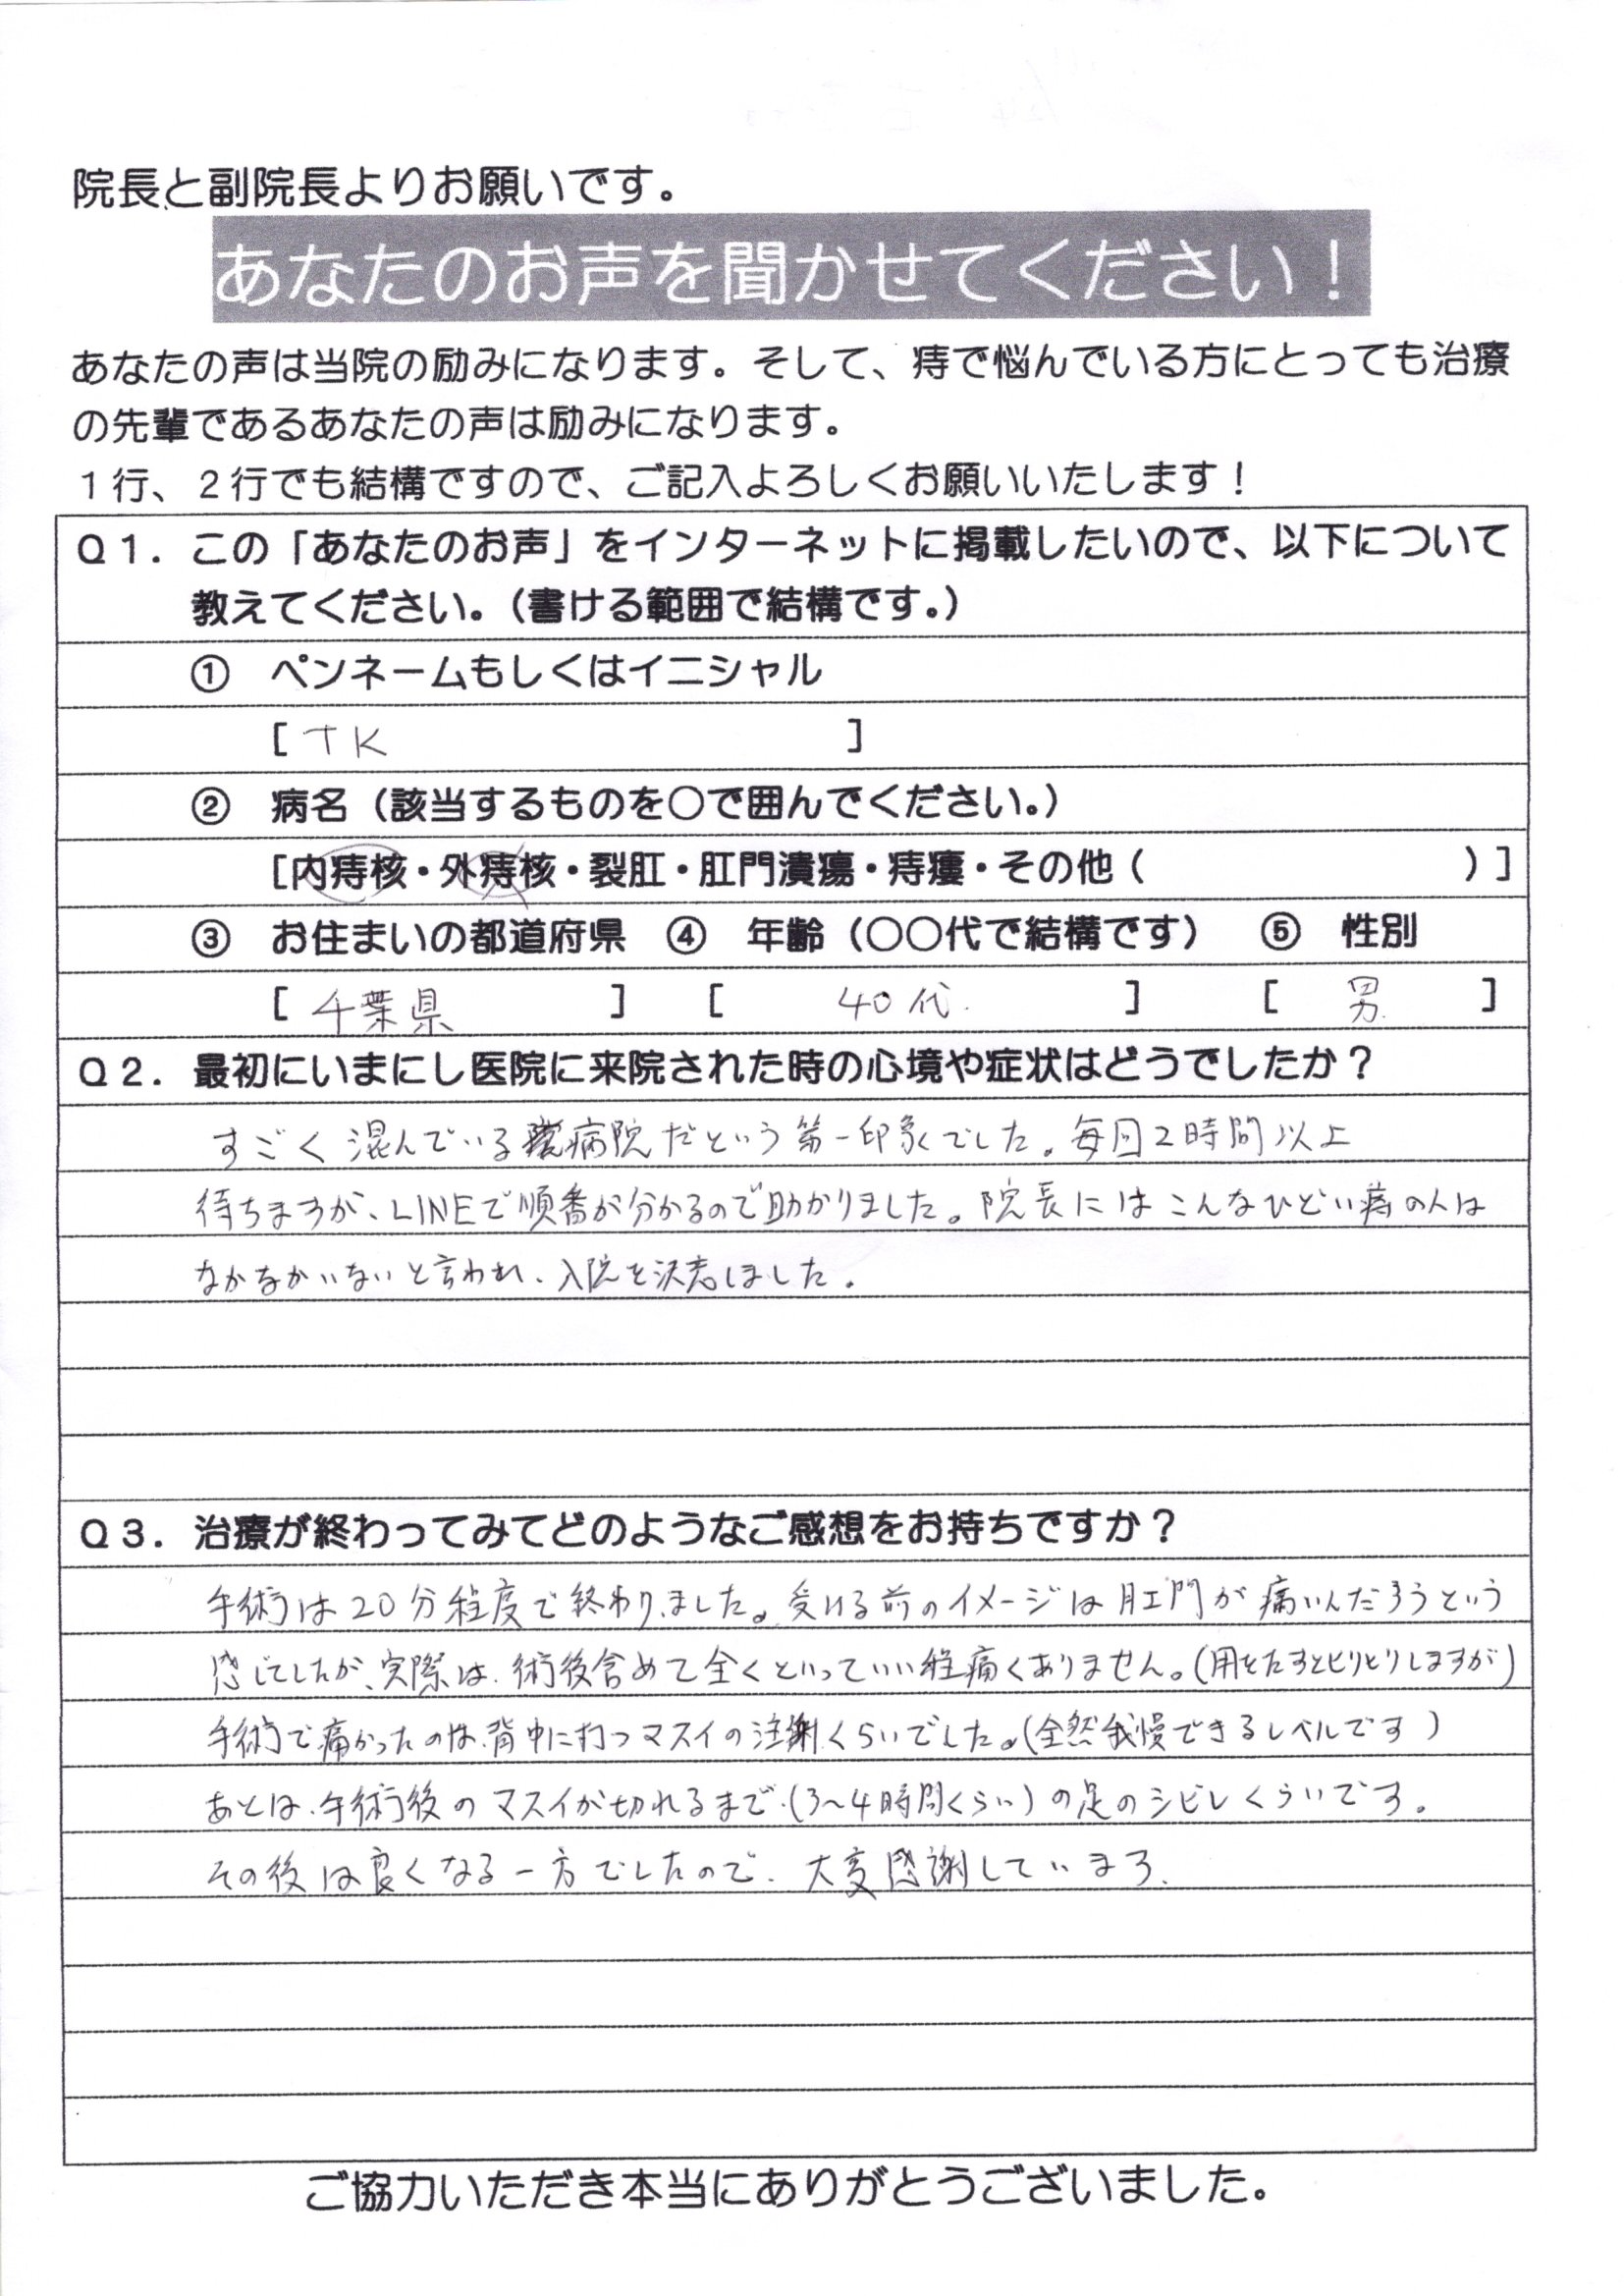 院長と副院長よりお願いです。
あなたのお声を聞かせてください！
あなたの声は当院の励みになります。そして、痔で悩んでいる方にとっても治療
の先輩であるあなたの声は励みになります。
１行、２行でも結構ですので、ご記入よろしくお願いいたします！
Ｑ１．この「あなたのお声」をインターネットに掲載したいので、以下について
教えてください。（書ける範囲で結構です。）
① ペンネームもしくはイニシャル
[ TK ]
② 病名（該当するものを○で囲んでください。）
[内痔核・外痔核・裂肛・肛門潰瘍・痔瘻・その他（ ）]
③ お住まいの都道府県 ④ 年齢（○○代で結構です） ⑤ 性別
[ 千葉県 ] [ 40代. ] [ 男. ]
Ｑ２．最初にいまにし医院に来院された時の心境や症状はどうでしたか？
すごく混んでいる病院だという第一印象でした。毎回2時間以上
待ちますが、LINEで順番が分かるので助かりました。院長にはこんなひどい痔の人は
なかなかいないと言われ、入院を決意しました。
Ｑ３．治療が終わってみてどのようなご感想をお持ちですか？
手術は20分程度で終わりました。受ける前のイメージは肛門が痛いんだろうという
感じでしたが、実際は、術後含めて全くといっていい程痛くありません。(用をたすとヒリヒリしますが)
手術で痛かったのは、背中に打つマスイの注射くらいでした。(全然我慢できるレベルです)
あとは、手術後のマスイが切れるまで(3～4時間くらい)の足のシビレくらいです。
その後は良くなる一方でしたので、大変感謝しています.
ご協力いただき本当にありがとうございました。